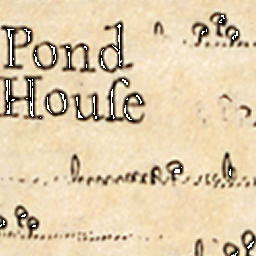 Pond
Houſe